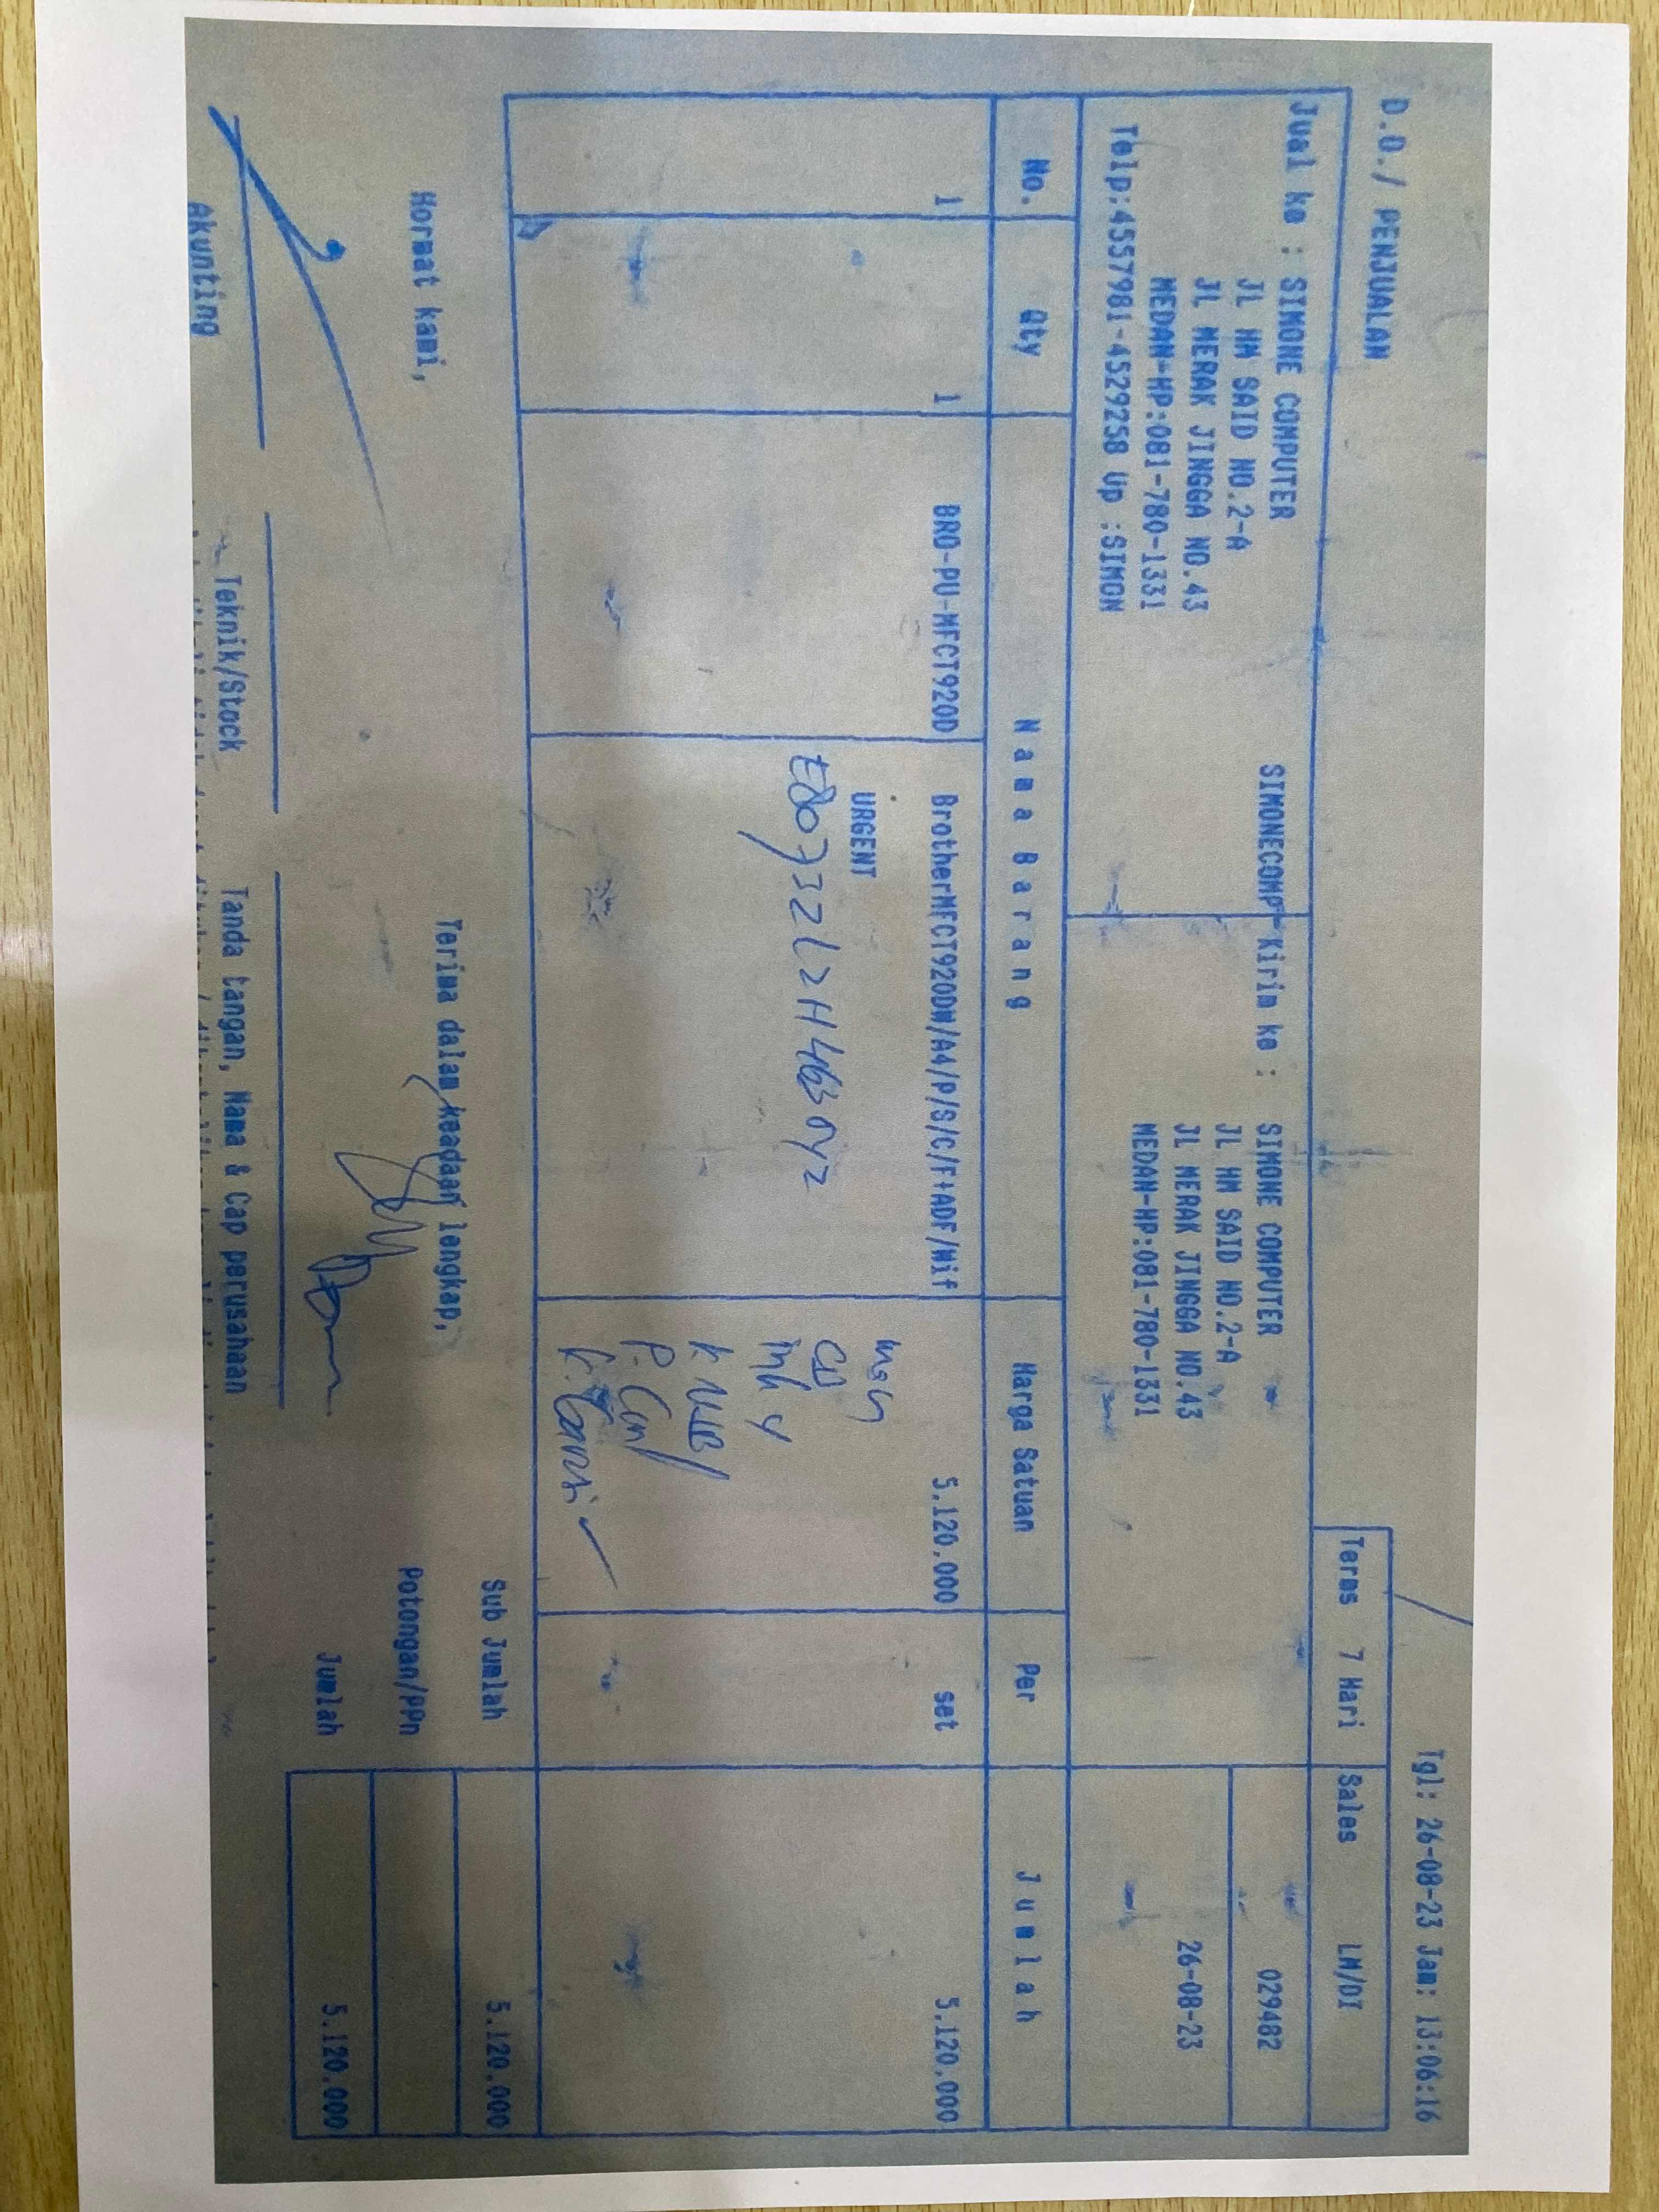 Tgl: 26-08-23 Jam: 13:06:16
D.O./ PENJUALAN
Terms 7 Hari Sales LM/DI
Jual ke : SIMONE COMPUTER SIMONECOMP Kirim ke : SIMONE COMPUTER 029482
JL HM SAID NO.2-A JL HM SAID NO.2-A
JL MERAK JINGGA NO.43 JL MERAK JINGGA NO.43 26-08-23
MEDAN-HP:081-780-1331 MEDAN-HP:081-780-1331
Telp:4557981-4529258 Up :SIMON
No. Qty Nama Barang Harga Satuan Per Jumlah
1 1 BRO-PU-MFCT920D BrotherMFCT920DW/A4/P/S/C/F+ADF/Wif 5.120.000 set 5.120.000
URGENT
CD
K. Garansi
Sub Jumlah 5.120.000
Hormat kami, Terima dalam keadaan lengkap, Potongan/PPn
Jumlah 5.120.000
Akunting Teknik/Stock Tanda tangan, Nama & Cap perusahaan